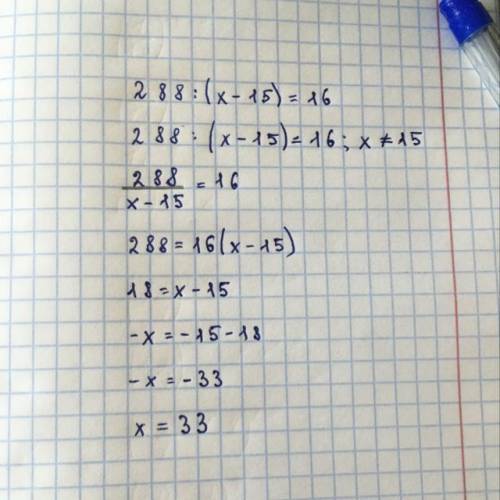 288:(x-15)=16
288:(x-15)=16; x≠15
288/(x-15)=16
288=16(x-15)
18=x-15
-x=-15-18
-x=-33
x=33